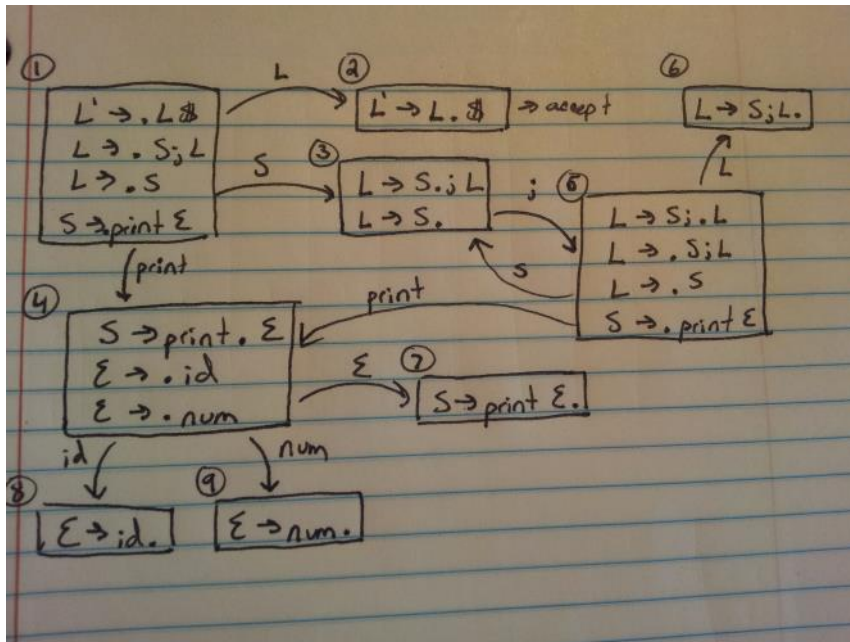 ①
L' → . L $
L → . S; L
L → . S
S → .print E
L
②
L' → L . $ → accept
S
③
L → S . ; L
L → S .
;
⑤
L → S; . L
L → . S; L
L → . S
S → . print E
L
⑥
L → S; L .
S
print
print
④
S → print . E
E → . id
E → . num
E
⑦
S → print E .
id
⑧
E → id .
num
⑨
E → num .